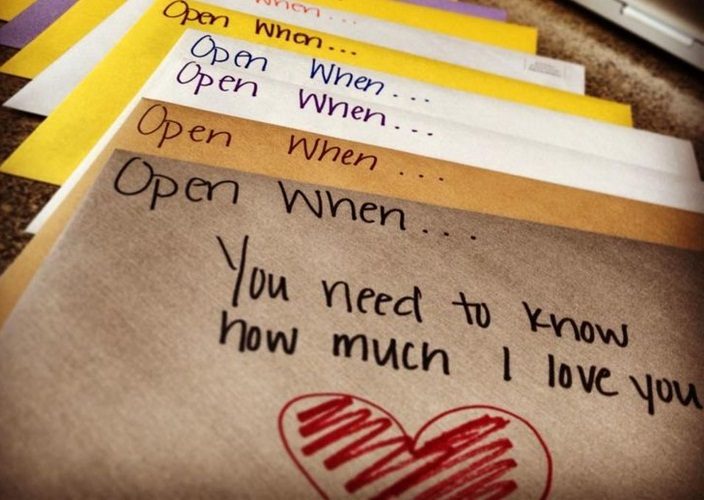 when...
Open When...
Open When...
Open When...
Open When...
Open When...
You need to know
how much I love you